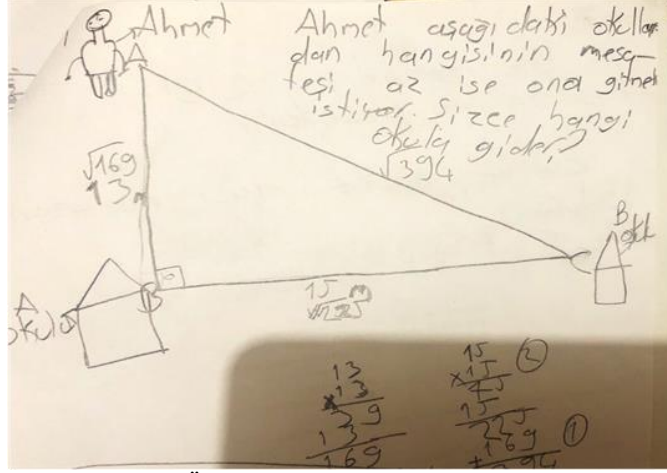 Ahmet
Ahmet aşağıdaki okullar
dan hangisinin mesa
fesi az ise ona gitmek
istiyor. Sizce hangi
okula gider?
A
√169
13 m
√394
B
okul
C
B
A
okulu
15 m
√225
13
x13
39
13
169
15
x15
15
225
169
+
394
2
1